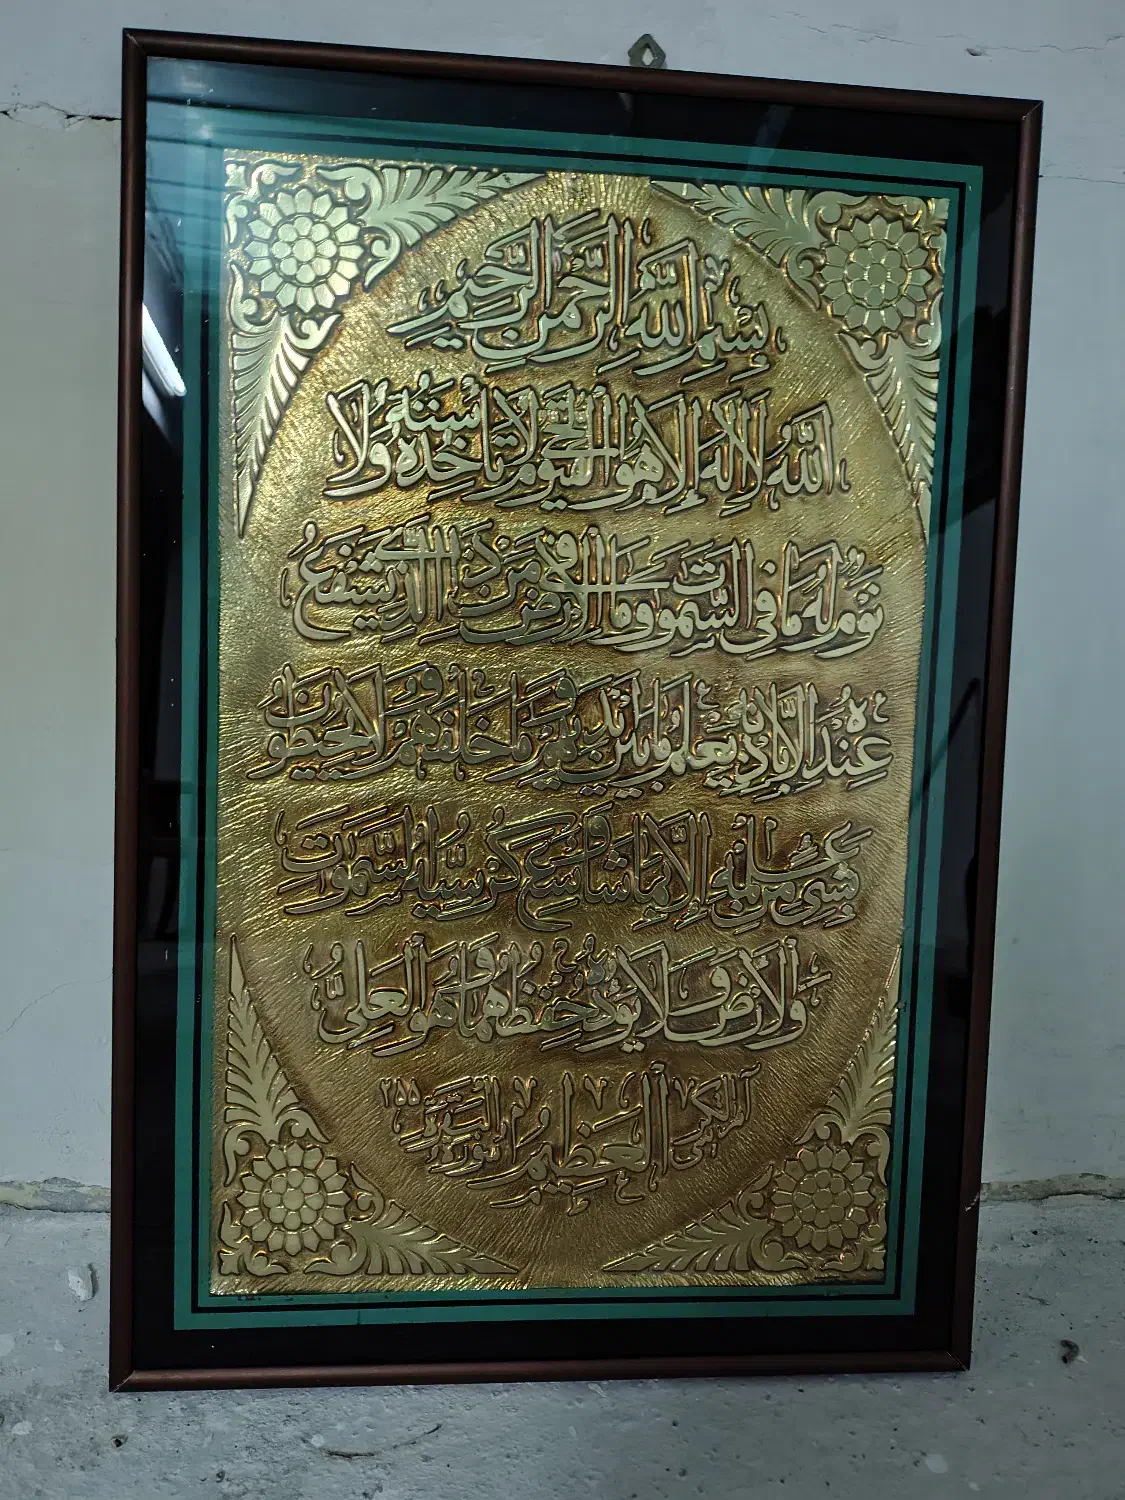 بِسْمِ اللَّهِ الرَّحْمٰنِ الرَّحِيْمِ
اَللّٰهُ لَا اِلٰهَ اِلَّا هُوَ الْحَيُّ الْقَيُّوْمُ لَا تَأْخُذُهُ سِنَةٌ وَلَا
نَوْمٌ لَهُ مَا فِي السَّمٰوٰتِ وَمَا فِي الْاَرْضِ مَنْ ذَا الَّذِيْ يَشْفَعُ
عِنْدَهُ اِلَّا بِاِذْنِهِ يَعْلَمُ مَا بَيْنَ اَيْدِيْهِمْ وَمَا خَلْفَهُمْ وَلَا يُحِيْطُوْنَ
بِشَيْءٍ مِنْ عِلْمِهِ اِلَّا بِمَا شَاءَ وَسِعَ كُرْسِيُّهُ السَّمٰوٰتِ
وَالْاَرْضَ وَلَا يَئُوْدُهُ حِفْظُهُمَا وَهُوَ الْعَلِيُّ
الْعَظِيْمُ
آية الكرسي البقرة ٢٥٥